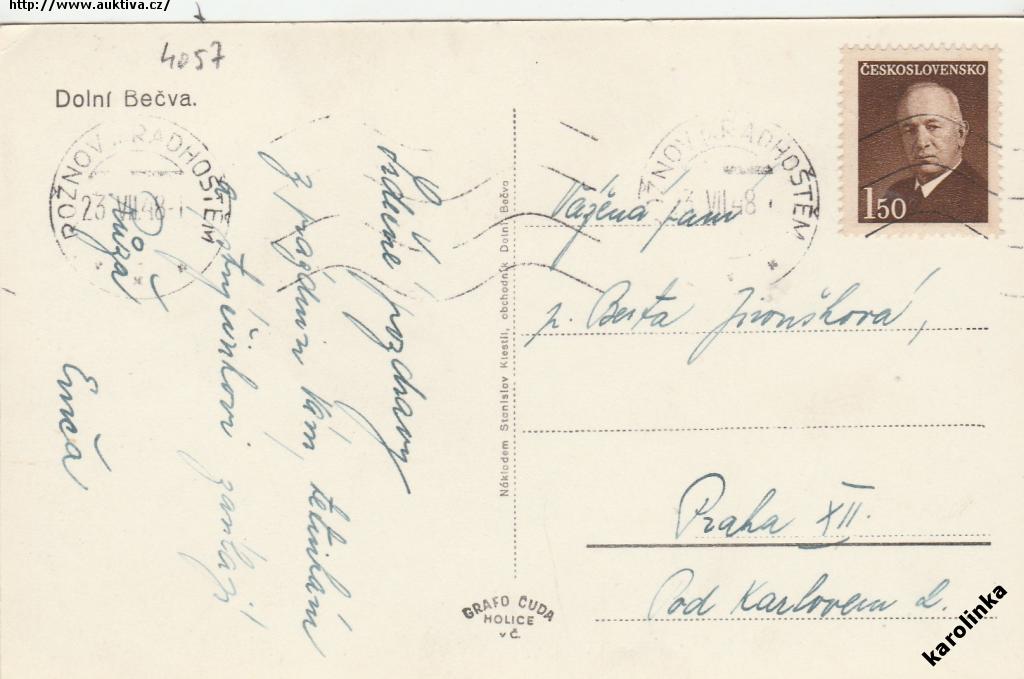 http://www.auktiva.cz/
4057
Dolní Bečva.
ROŽNOV P. RADHOŠTĚM
23 VII. 48
Srdečné pozdravy
z prázdnin Vám, tetinkám
a strýčinkovi zasílají
Růža
Enča
Nákladem Stanislav Klestil, obchodník Dolní Bečva
GRAFO ČUDA
HOLICE
v Č.
ROŽNOV P. RADHOŠTĚM
23 VII. 48
ČESKOSLOVENSKO
1 50
Vážená paní
p. Berta Jiroušková,
Praha XII.
Pod Karlovem 2.
karolinka